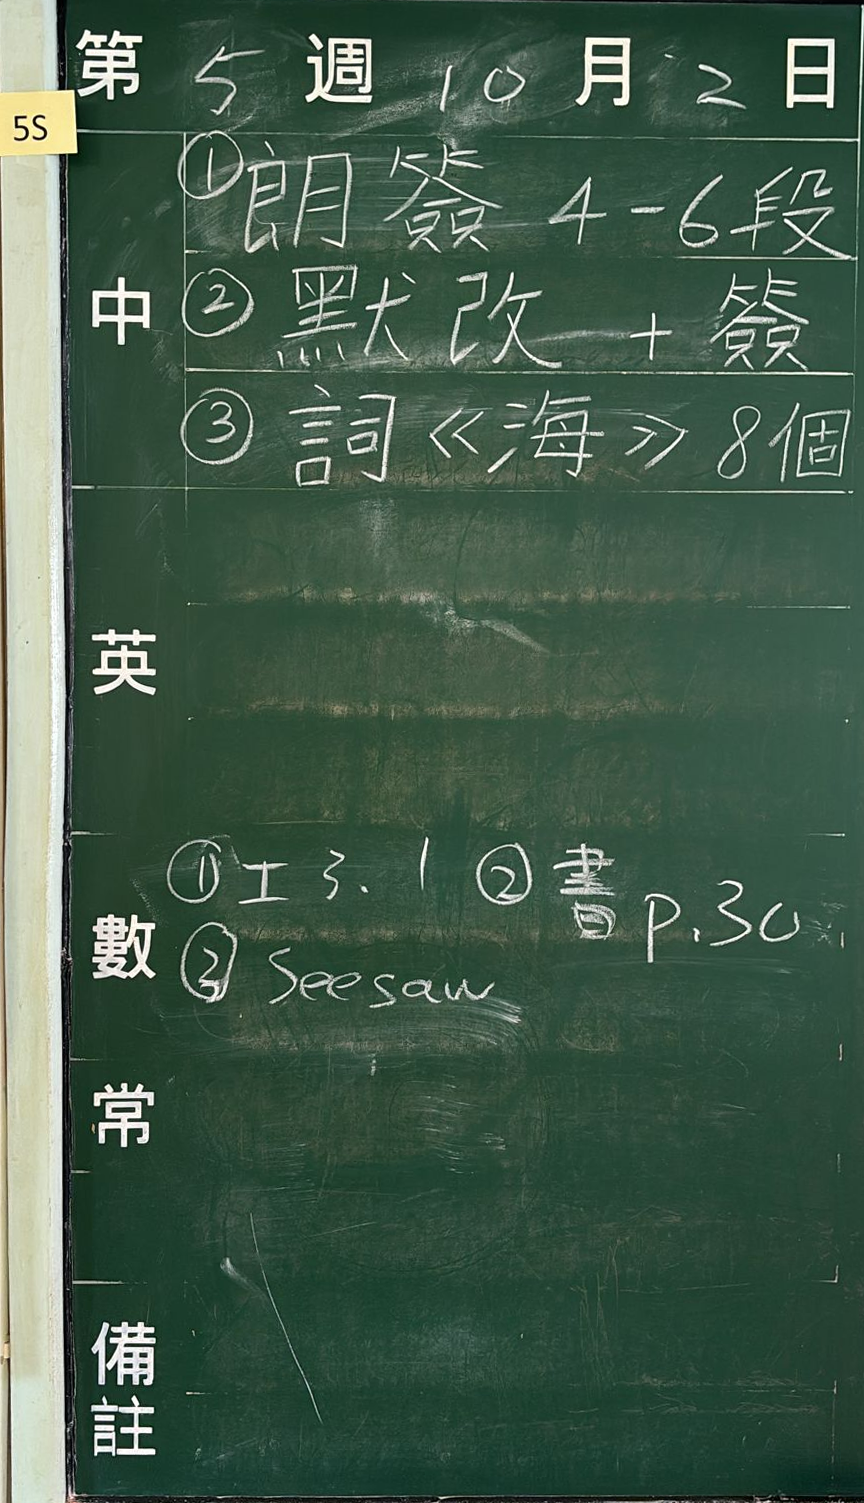 第 5 週 10 月 2 日
5S
中
① 朗簽 4-6段
② 默改 + 簽
③ 詞《海》8個
英
數
① 工 3.1 ② 書 p.30
③ Seesaw
常
備註